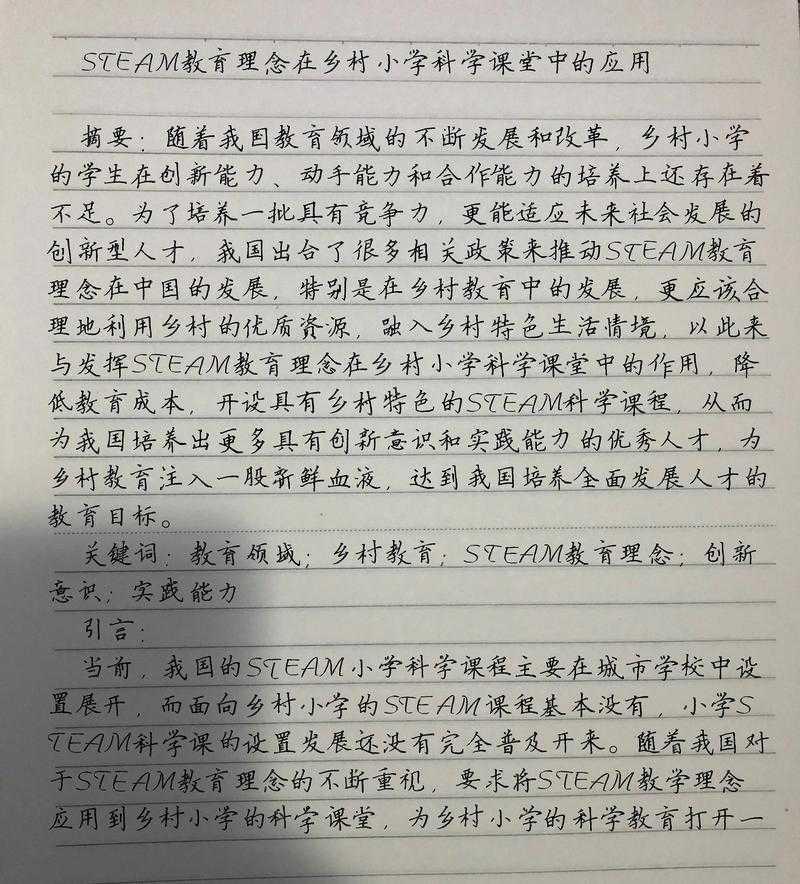 STEAM教育理念在乡村小学科学课堂中的应用
摘要：随着我国教育领域的不断发展和改革，乡村小学
的学生在创新能力、动手能力和合作能力的培养上还存在着
不足。为了培养一批具有竞争力，更能适应未来社会发展的
创新型人才，我国出台了很多相关政策来推动STEAM教育
理念在中国的发展，特别是在乡村教育中的发展，更应该合
理地利用乡村的优质资源，融入乡村特色生活情境，以此来
与发挥STEAM教育理念在乡村小学科学课堂中的作用，降
低教育成本，开设具有乡村特色的STEAM科学课程，从而
为我国培养出更多具有创新意识和实践能力的优秀人才，为
乡村教育注入一股新鲜血液，达到我国培养全面发展人才的
教育目标。
关键词：教育领域；乡村教育；STEAM教育理念；创新
意识；实践能力
引言：
当前，我国的STEAM小学科学课程主要在城市学校中设
置展开，而面向乡村小学的STEAM课程基本没有，小学S
TEAM科学课的设置发展还没有完全普及开来。随着我国对
于STEAM教育理念的不断重视，要求将STEAM教学理念
应用到乡村小学的科学课堂，为乡村小学的科学教育打开一